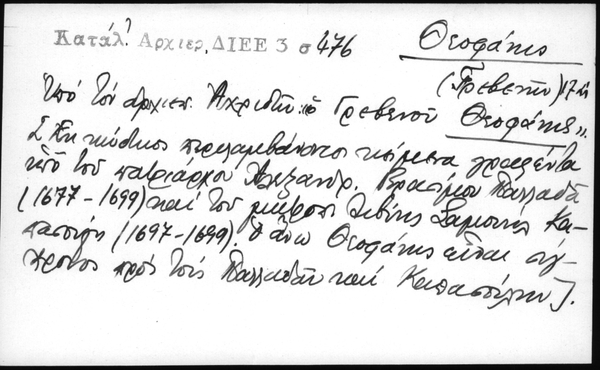 Κατάλ? Αρχιερ. ΔΙΕΕ 3 σ 476
Θεοφάνης
(Γρεβενῶν) 17 αι
Ὑπό τόν ἀρχιεπ. Ἀχριδῶν: ὁ Γρεβενοῦ Θεοφάνης».
Σ κώδικος περιλαμβάνοντος κείμενα γραφέντα
ὑπό τοῦ πατριάρχου Ἀλεξανδρ. Γερασίμου Παλλαδᾶ
(1677-1699) καί τοῦ μητροπ. Λιβύης Σαμουήλ Κα-
πασούλη (1697-1699). Ὁ ἄνω Θεοφάνης εἶναι σύγ-
χρονος πρός τούς Παλλαδᾶν καί Καπασούλην].